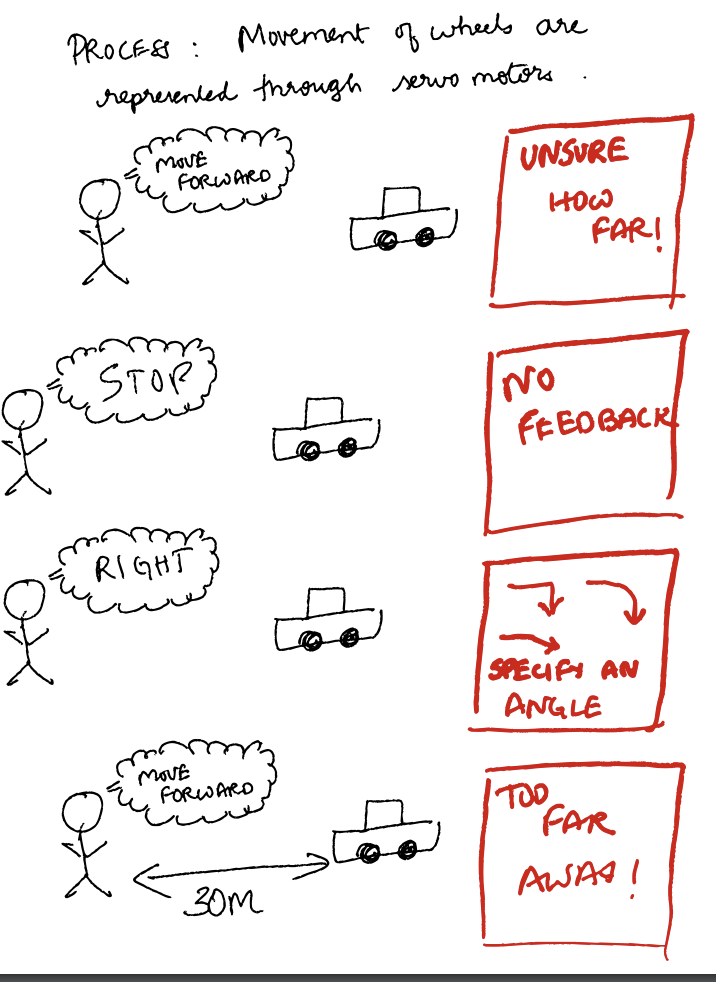 PROCESS : Movement of wheels are
represented through servo motors .
MOVE
FORWARD
UNSURE
HOW
FAR!
STOP
NO
FEEDBACK
RIGHT
SPECIFY AN
ANGLE
MOVE
FORWARD
30M
TOO
FAR
AWAY!